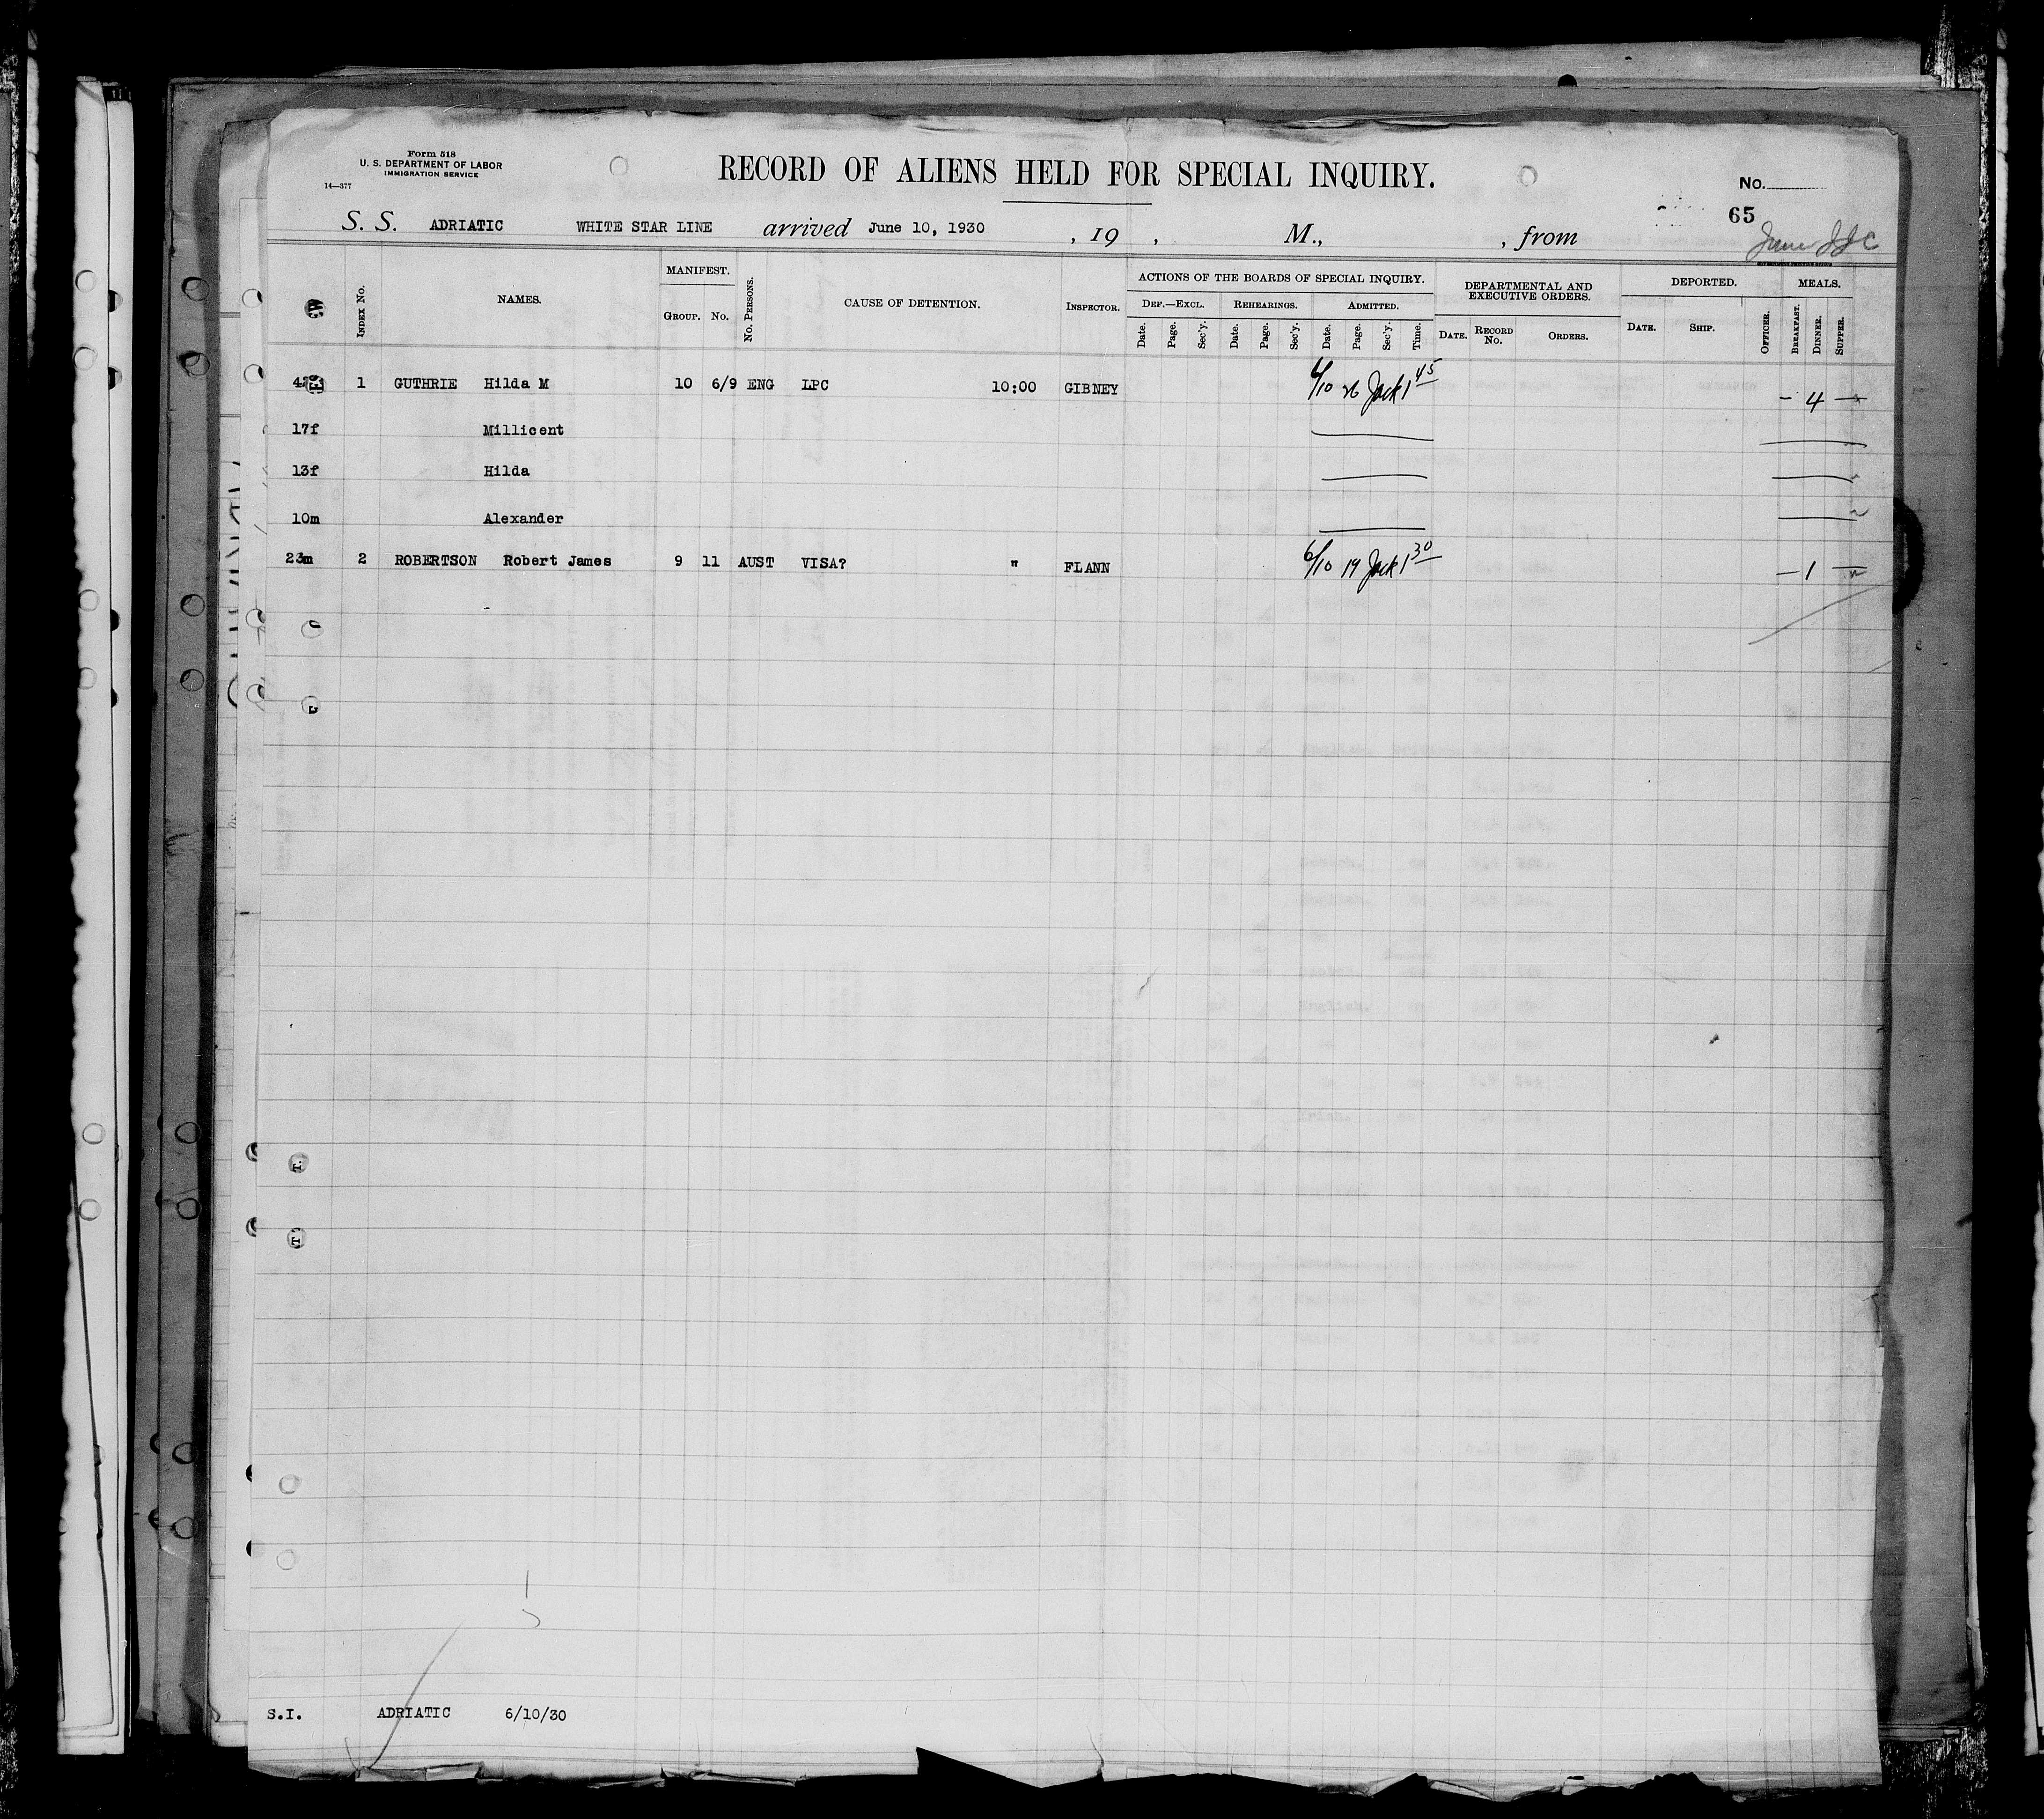 Form 518
U. S. DEPARTMENT OF LABOR
IMMIGRATION SERVICE
14—377
RECORD OF ALIENS HELD FOR SPECIAL INQUIRY.
No.
65
S. S. ADRIATIC WHITE STAR LINE arrived June 10, 1930 , 19 , M., , from
June
INDEX No. NAMES. MANIFEST. GROUP. No. No. PERSONS. CAUSE OF DETENTION. INSPECTOR. ACTIONS OF THE BOARDS OF SPECIAL INQUIRY. DEF.—EXCL. Date. Page. Sec'y. REHEARINGS. Date. Page. Sec'y. ADMITTED. Date. Page. Sec'y. Time. DEPARTMENTAL AND EXECUTIVE ORDERS. DATE. RECORD No. ORDERS. DEPORTED. DATE. SHIP. OFFICER. MEALS. BREAKFAST. DINNER. SUPPER.
1 GUTHRIE Hilda M 10 6/9 ENG LPC 10:00 GIBNEY 6/10 26 Jack 1 45 — 4 —
17f Millicent
13f Hilda
10m Alexander
23m 2 ROBERTSON Robert James 9 11 AUST VISA? " FLANN 6/10 19 Jack 1 30 — 1 —
S.I. ADRIATIC 6/10/30